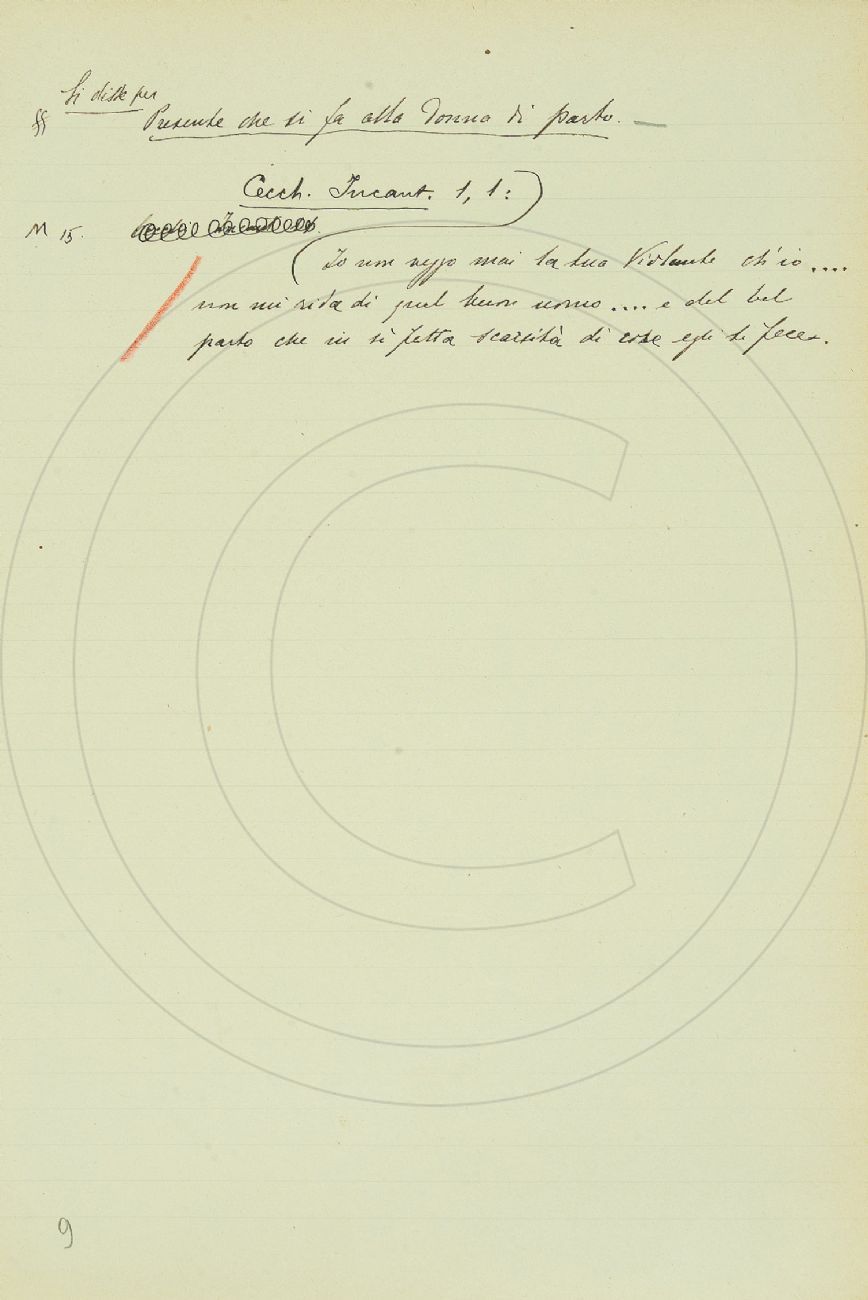 Si disse per
§§ Presente che si fa alla donna di parto. —
Cecch. Incant. 1, 1:
M 15.
Io non veggo mai la tua Violante ch'io ....
non mi rida di quel buon uomo .... e del bel
parto che in sì fatta scarsità di cose egli si fece.
9